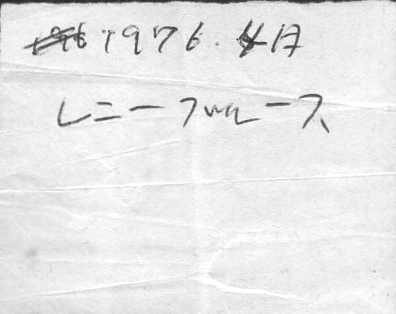 1976.4月
レニーブルース